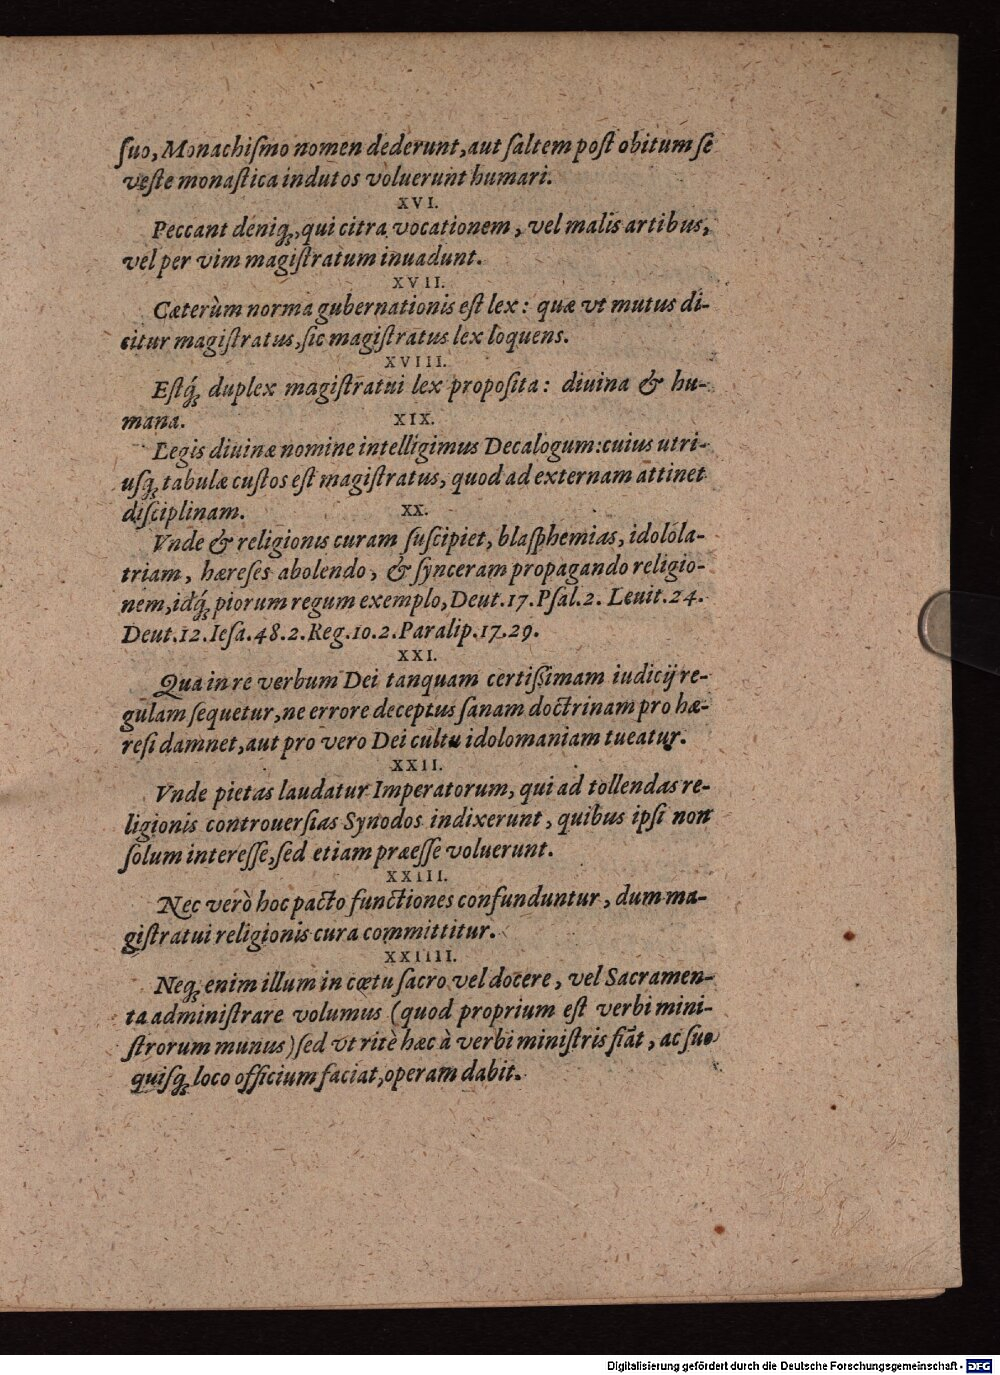 ſuo, Monachiſmo nomen dederunt, aut ſaltem poſt obitum ſe
veſte monaſtica indutos voluerunt humari.
XVI.
Peccant deniq́;, qui citra vocationem, vel malis artibus,
vel per vim magiſtratum inuadunt.
XVII.
Cæterùm norma gubernationis eſt lex: quæ vt mutus di-
citur magiſtratus, ſic magiſtratus lex loquens.
XVIII.
Eſtq́; duplex magiſtratui lex propoſita: diuina & hu-
mana.
XIX.
Legis diuinæ nomine intelligimus Decalogum: cuius utri-
uſq́; tabulæ cuſtos eſt magiſtratus, quod ad externam attinet
diſciplinam.
XX.
Vnde & religionis curam ſuſcipiet, blaſphemias, idolola-
triam, hæreſes abolendo, & ſynceram propagando religio-
nem, idq́; piorum regum exemplo, Deut. 17. Pſal. 2. Leuit. 24.
Deut. 12. Ieſa. 48. 2. Reg. 10. 2. Paralip. 17. 29.
XXI.
Qua in re verbum Dei tanquam certiſſimam iudicij re-
gulam ſequetur, ne errore deceptus ſanam doctrinam pro hæ-
reſi damnet, aut pro vero Dei cultu idolomaniam tueatur.
XXII.
Vnde pietas laudatur Imperatorum, qui ad tollendas re-
ligionis controuerſias Synodos indixerunt, quibus ipſi non
ſolum intereſſe, ſed etiam præeſſe voluerunt.
XXIII.
Nec verò hoc pacto functiones confunduntur, dum ma-
giſtratui religionis cura committitur.
XXIIII.
Neq́; enim illum in cœtu ſacro vel docere, vel Sacramen-
ta adminiſtrare volumus (quod proprium eſt verbi mini-
ſtrorum munus) ſed vt ritè hæc à verbi miniſtris fiãt, ac ſuo
quiſq́; loco officium faciat, operam dabit.
Digitalisierung gefördert durch die Deutsche Forschungsgemeinschaft - DFG